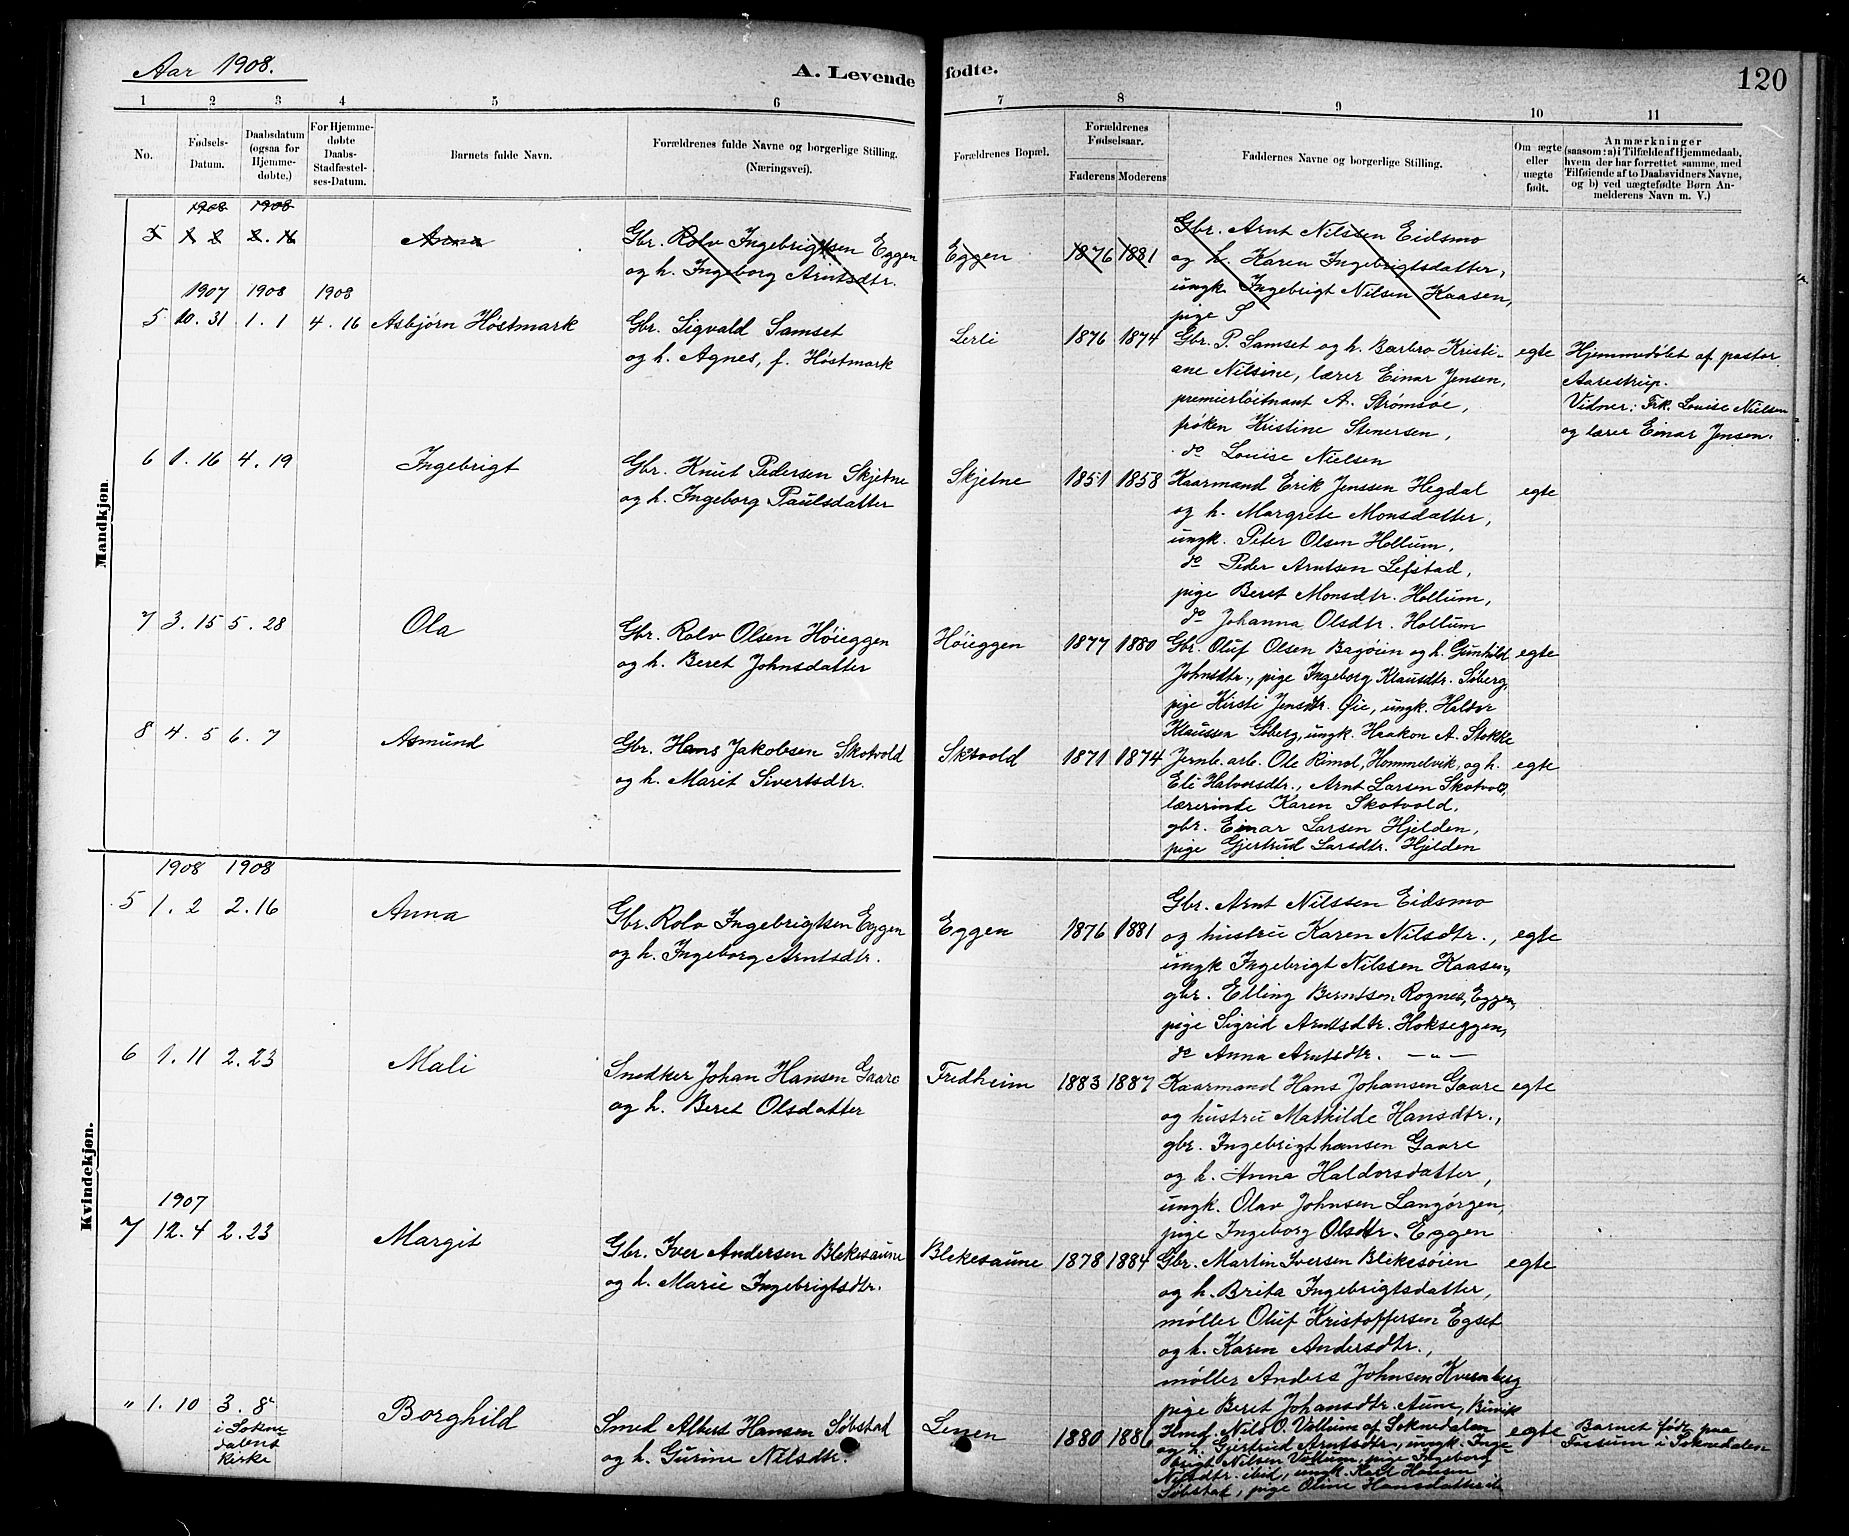 Aar 1908.
A. Levende fødte.
120
1 2 3 4 5 6 7 8 9 10 11
No.
Fødsels-
Datum.
Daabsdatum
(ogsaa for
Hjemme-
døbte.)
For Hjemme-
døbte
Daabs-
Stadfæstel-
ses-Datum.
Barnets fulde Navn.
Forældrenes fulde Navne og borgerlige Stilling.
(Næringsvei).
Forældrenes Bopæl.
Forældrenes
Fødselsaar.
Faderens Moderens
Faddernes Navne og borgerlige Stilling.
Om ægte
eller
uægte
født.
Anmærkninger
(saasom: a) i Tilfælde af Hjemmedaab,
hvem der har forrettet samme, med
Tilføiende af to Daabsvidners Navne,
og b) ved uægtefødte Børn An-
melderens Navn m. V.)
Mandkjøn.
1908 1908
5 1 2 2. 16 Anna
Gbr. Rolv Ingebrigtsen Eggen
og h. Ingeborg Arntsdtr.
Eggen 1876 1881
Gbr. Arnt Nilssen Eidsmo
og h. Karen Ingebrigtsdatter,
ungk. Ingebrigt Nilsen Kaasen,
pige S
1907 1908 1908
5 10. 31 1. 1 4. 16 Asbjørn Høstmark
Gbr. Sigvald Samset
og h. Agnes, f. Høstmark
Lerli 1876 1874
Gbr. P. Samset og h. Barbro Kristi-
ane Nilsine, lærer Einar Jensen,
premierløitnant A. Strømsøe,
frøken Kristine Stenersen,
do Louise Nielsen
egte
Hjemmedøbt af pastor
Aarestrup.
Vidner: Frk. Louise Nielsen
og lærer Einar Jensen.
6 1. 16 4. 19 Ingebrigt
Gbr. Knut Pedersen Skjetne
og h. Ingeborg Paulsdatter
Skjetne 1851 1858
Kaarmand Erik Jenssen Hegdal
og h. Margrete Monsdatter,
ungk. Peter Olsen Hollum,
do Peder Arntsen Lefstad,
pige Beret Monsdtr. Hollum,
do Johanna Olsdtr. Hollum
egte
7 3. 15 5. 28 Ola
Gbr. Rolv Olsen Høieggen
og h. Beret Johnsdatter
Høieggen 1877 1880
Gbr. Oluf Olsen Bagøien og h. Gunhild
Johnsdtr., pige Ingeborg Klausdtr. Søberg,
pige Kirsti Jensdtr. Øie, ungk. Haldor
Klaussen Søberg, ungk. Haakon A. Stokke
egte
8 4. 5 6. 7 Asmund
Gbr. Hans Jakobsen Skotvold
og h. Marit Sivertsdtr.
Skotvold 1871 1874
Jernb. arb. Ole Rimol, Hommelvik, og h.
Eli Halvorsdtr., Arnt Larsen Skotvold,
lærerinde Karen Skotvold,
gbr. Einar Larsen Hjelden,
pige Gjertrud Larsdtr. Hjelden
egte
Kvindekjøn.
1908 1908
5 1. 2 2. 16 Anna
Gbr. Rolv Ingebrigtsen Eggen
og h. Ingeborg Arntsdtr.
Eggen 1876 1881
Gbr. Arnt Nilssen Eidsmo
og hustru Karen Nilsdtr.,
ungk Ingebrigt Nilssen Kaasen,
gbr. Elling Berntsen Rognes, Eggen,
pige Sigrid Arntsdtr. Hokseggen,
do Anna Arntsdtr. — " —
egte
6 1. 11 2. 23 Mali
Snedker Johan Hansen Gaare
og h. Beret Olsdatter
Fredheim 1883 1887
Kaarmand Hans Johansen Gaare
og hustru Mathilde Hansdtr.,
gbr. Ingebrigt hansen Gaare
og h. Anna Haldorsdatter,
ungk. Olav Johnsen Langørgen,
pige Ingeborg Olsdtr. Eggen
egte
1907
7 12. 4 2. 23 Margit
Gbr. Iver Andersen Blekesaune
og h. Marie Ingebrigtsdtr.
Blekesaune 1878 1884
Gbr. Martin Iversen Blikesøien
og h. Brita Ingebrigtsdatter,
møller Oluf Kristoffersen Egset
og h. Karen Andersdtr.,
møller Anders Johnsen Kvernberg
pige Beret Johansdtr Aune,
egte
" 1. 10 3. 8
i Sokne
dalens
kirke
Borghild
Smed Albert Hansen Søbstad
og h. Gurine Nilsdtr.
Leseen 1880 1886
Hmd. Nils O. Vollum af Soknedalen
og h. Gjertrud Arntsdtr., ungk. Inge
brigt Nilsen Vollum, pige Ingeborg
Nilsdtr. ibid, ungk. Karl Hansen
Søbstad, pige Oline Hansdatter
egte
Barnet født paa
Fossum i Soknedalen